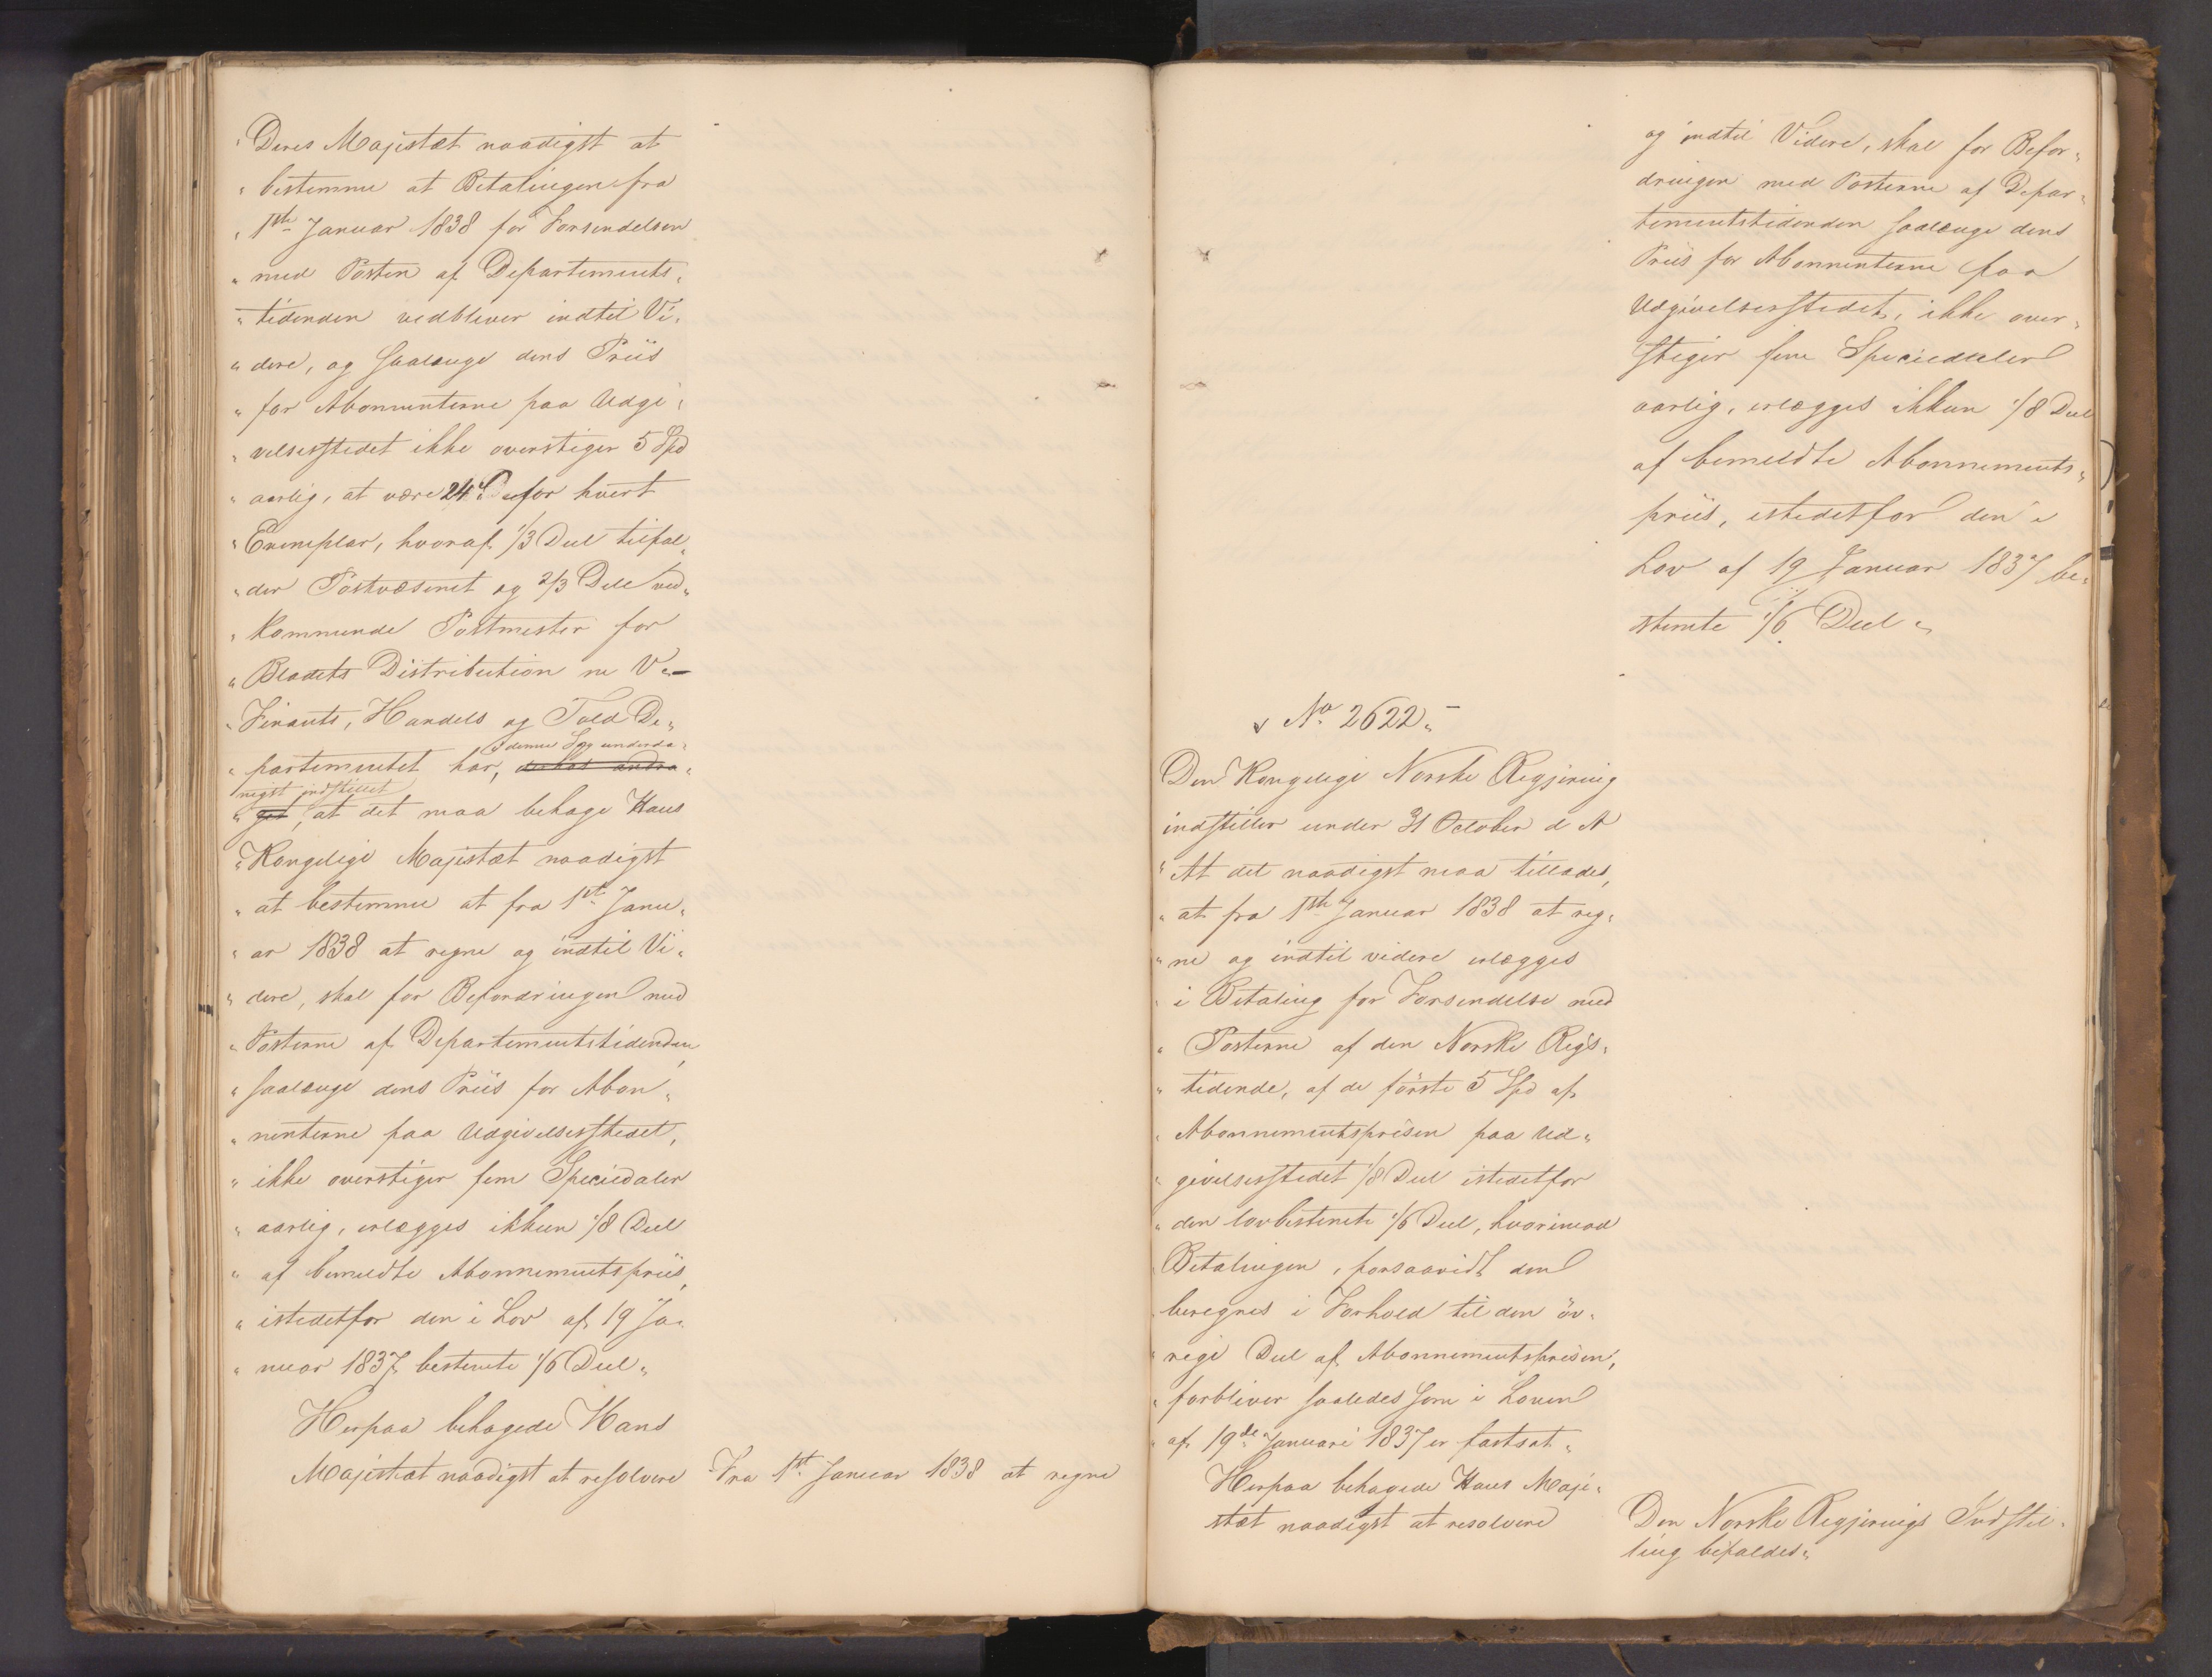 Deres Majestæt naadigst at
" bestemme at Betalingen fra
" 1ste Januar 1838 for Forsendelsen
" med Posten af Departements„
" tidenden vedbliver indtil Vi„
" dere, og saalænge dens Priis
" for Abonnenterne paa Udgi„
" velsesstedet ikke overstiger 5 Spd
" aarlig, at være 24 for hvert
" Exemplar, hvoraf 1/3 Deel tilfal„
" der Postvæsenet og 2/3 Dele ved„
" kommende Postmester for
" Bladets Distribution m V„—
" Finants, Handels og Told De„
" partementet har, ~~derhos andra~~ i denne Sag underda„
" ~~get~~ nigst indstillet, at det maa behage Hans
" Kongelige Majestæt naadigst
" at bestemme at fra 1ste Janu„
" ar 1838 at regne og indtil Vi„
" dere, skal for Befordringen med
" Posterne af Departementstidenden,
" saalænge dens Priis for Abon„
" nenterne paa Udgivelsesstedet,
" ikke overstiger fem Speciedaler
" aarlig, erlægges ikkun 1/8 Deel
" af bemeldte Abonnementspriis,
" istedetfor den i Lov af 19 Ja„
" nuar 1837 bestemte 1/6 Deel„
Herpaa behagede Hans
Majestæt naadigst at resolvere
Fra 1ste Januar 1838 at regne
og indtil Videre, skal for Befor„
dringen med Posterne af Depar„
tementstidenden saalænge dens
Priis for Abonnenterne paa
Udgivelsesstedet, ikke over„
stiger fem Speciedaler
aarlig, erlægges ikkun 1/8 Deel
af bemeldte Abonnements„
priis, istedetfor den i
Lov af 19 Januar 1837 be„
stemte 1/6 Deel„
No 2622„
Den Kongelige Norske Regjering
indstiller under 31 October d A
" At det naadigst maa tillades,
" at fra 1ste Januar 1838 at reg„
" ne og indtil videre erlægges
" i Betaling for Forsendelse med
" Posterne af den Norske Rigs„
" tidende, af de förste 5 Spd af
" Abonnementsprisen paa Ud„
" givelsesstedet 1/8 Deel istedetfor
" den lovbestemte 1/6 Deel, hvorimod
" Betalingen, forsaavidt den
" beregnes i Forhold til den öv„
" rige Deel af Abonnementsprisen,
" forbliver saaledes som i Loven
" af 19de Januari 1837 er fastsat„
Herpaa behagede Hans Maje„
stæt naadigst at resolvere
Den Norske Regjerings Indstil„
ling bifaldes„